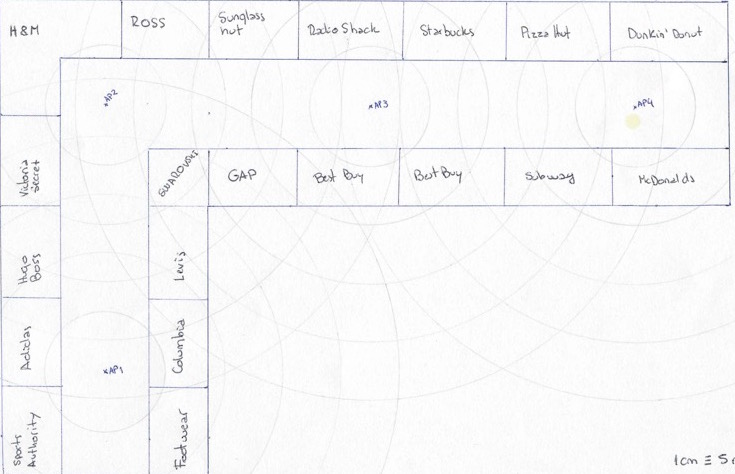 H&M
ROSS
Sunglass
hut
Radio Shack
Starbucks
Pizza Hut
Dunkin' Donut
AP2
AP3
AP4
Victoria
Secret
SWAROVSKI
GAP
Best Buy
Best Buy
Subway
McDonalds
Hugo
Boss
Levis
Adidas
AP1
Columbia
Sports
Authority
Footwear
1cm ≡ 5